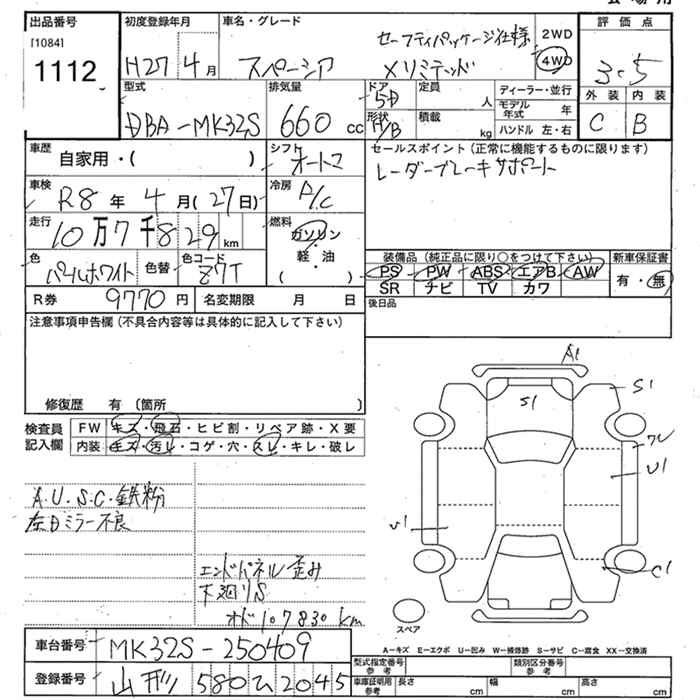 出品番号
[1084]
1112
初度登録年月
H27 4月
車名・グレード
スペーシア
セーフティパッケージ仕様
Xリミテッド
2WD
4WD
評価点
3.5
外装 内装
C B
型式
DBA-MK32S
排気量
660 cc
ドア
5D
形状
H/B
定員 人
積載 kg
ディーラー・並行
モデル年式 年
ハンドル 左・右
車歴
自家用・( )
シフト
オートマ
セールスポイント (正常に機能するものに限ります)
レーダーブレーキサポート
車検
R8年 4月(27日)
冷房
A/C
走行
10万7千829km
燃料
ガソリン
軽・油
( )
色
パールホワイト
色替
色コード
Z7T
装備品 (純正品に限り○をつけて下さい)
PS PW ABS エアB AW
SR ナビ TV カワ
新車保証書
有・無
R券 9770円
名変期限 月 日
後日品
注意事項申告欄 (不具合内容等は具体的に記入して下さい)
修復歴 有 (箇所 )
検査員記入欄
FW キズ・飛石・ヒビ割・リペア跡・X要
内装 キズ・汚レ・コゲ・穴・スレ・キレ・破レ
A.U.S.C.鉄粉
左Dミラー不良
エンドパネル歪み
下廻りS
オド107830km
A1
S1
S1
U1
U1
C1
スペア
A-キズ E-エクボ U-凹み W-補修跡 S-サビ C-腐食 XX-交換済
車台番号 MK32S-250409
型式指定番号 参考
類別区分番号 参考
登録番号
580 2045
車庫証明用 参考
長さ cm 幅 cm 高さ cm